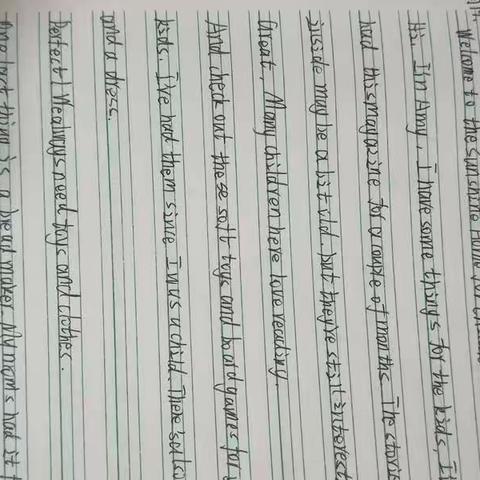 Welcome to the Sunshine Home for
Hi, I'm Amy. I have some things for the kids, I
had this magazine for a couple of months. The storie
inside may be a bit old. but they're still interest
Great, Many children here love reading.
And check out these soft toys and board games for
kids. I've had them since I was a child. There's also
and a dress.
Perfect! We always need toys and clothes.
One last thing is a bread maker. My mom's had it f